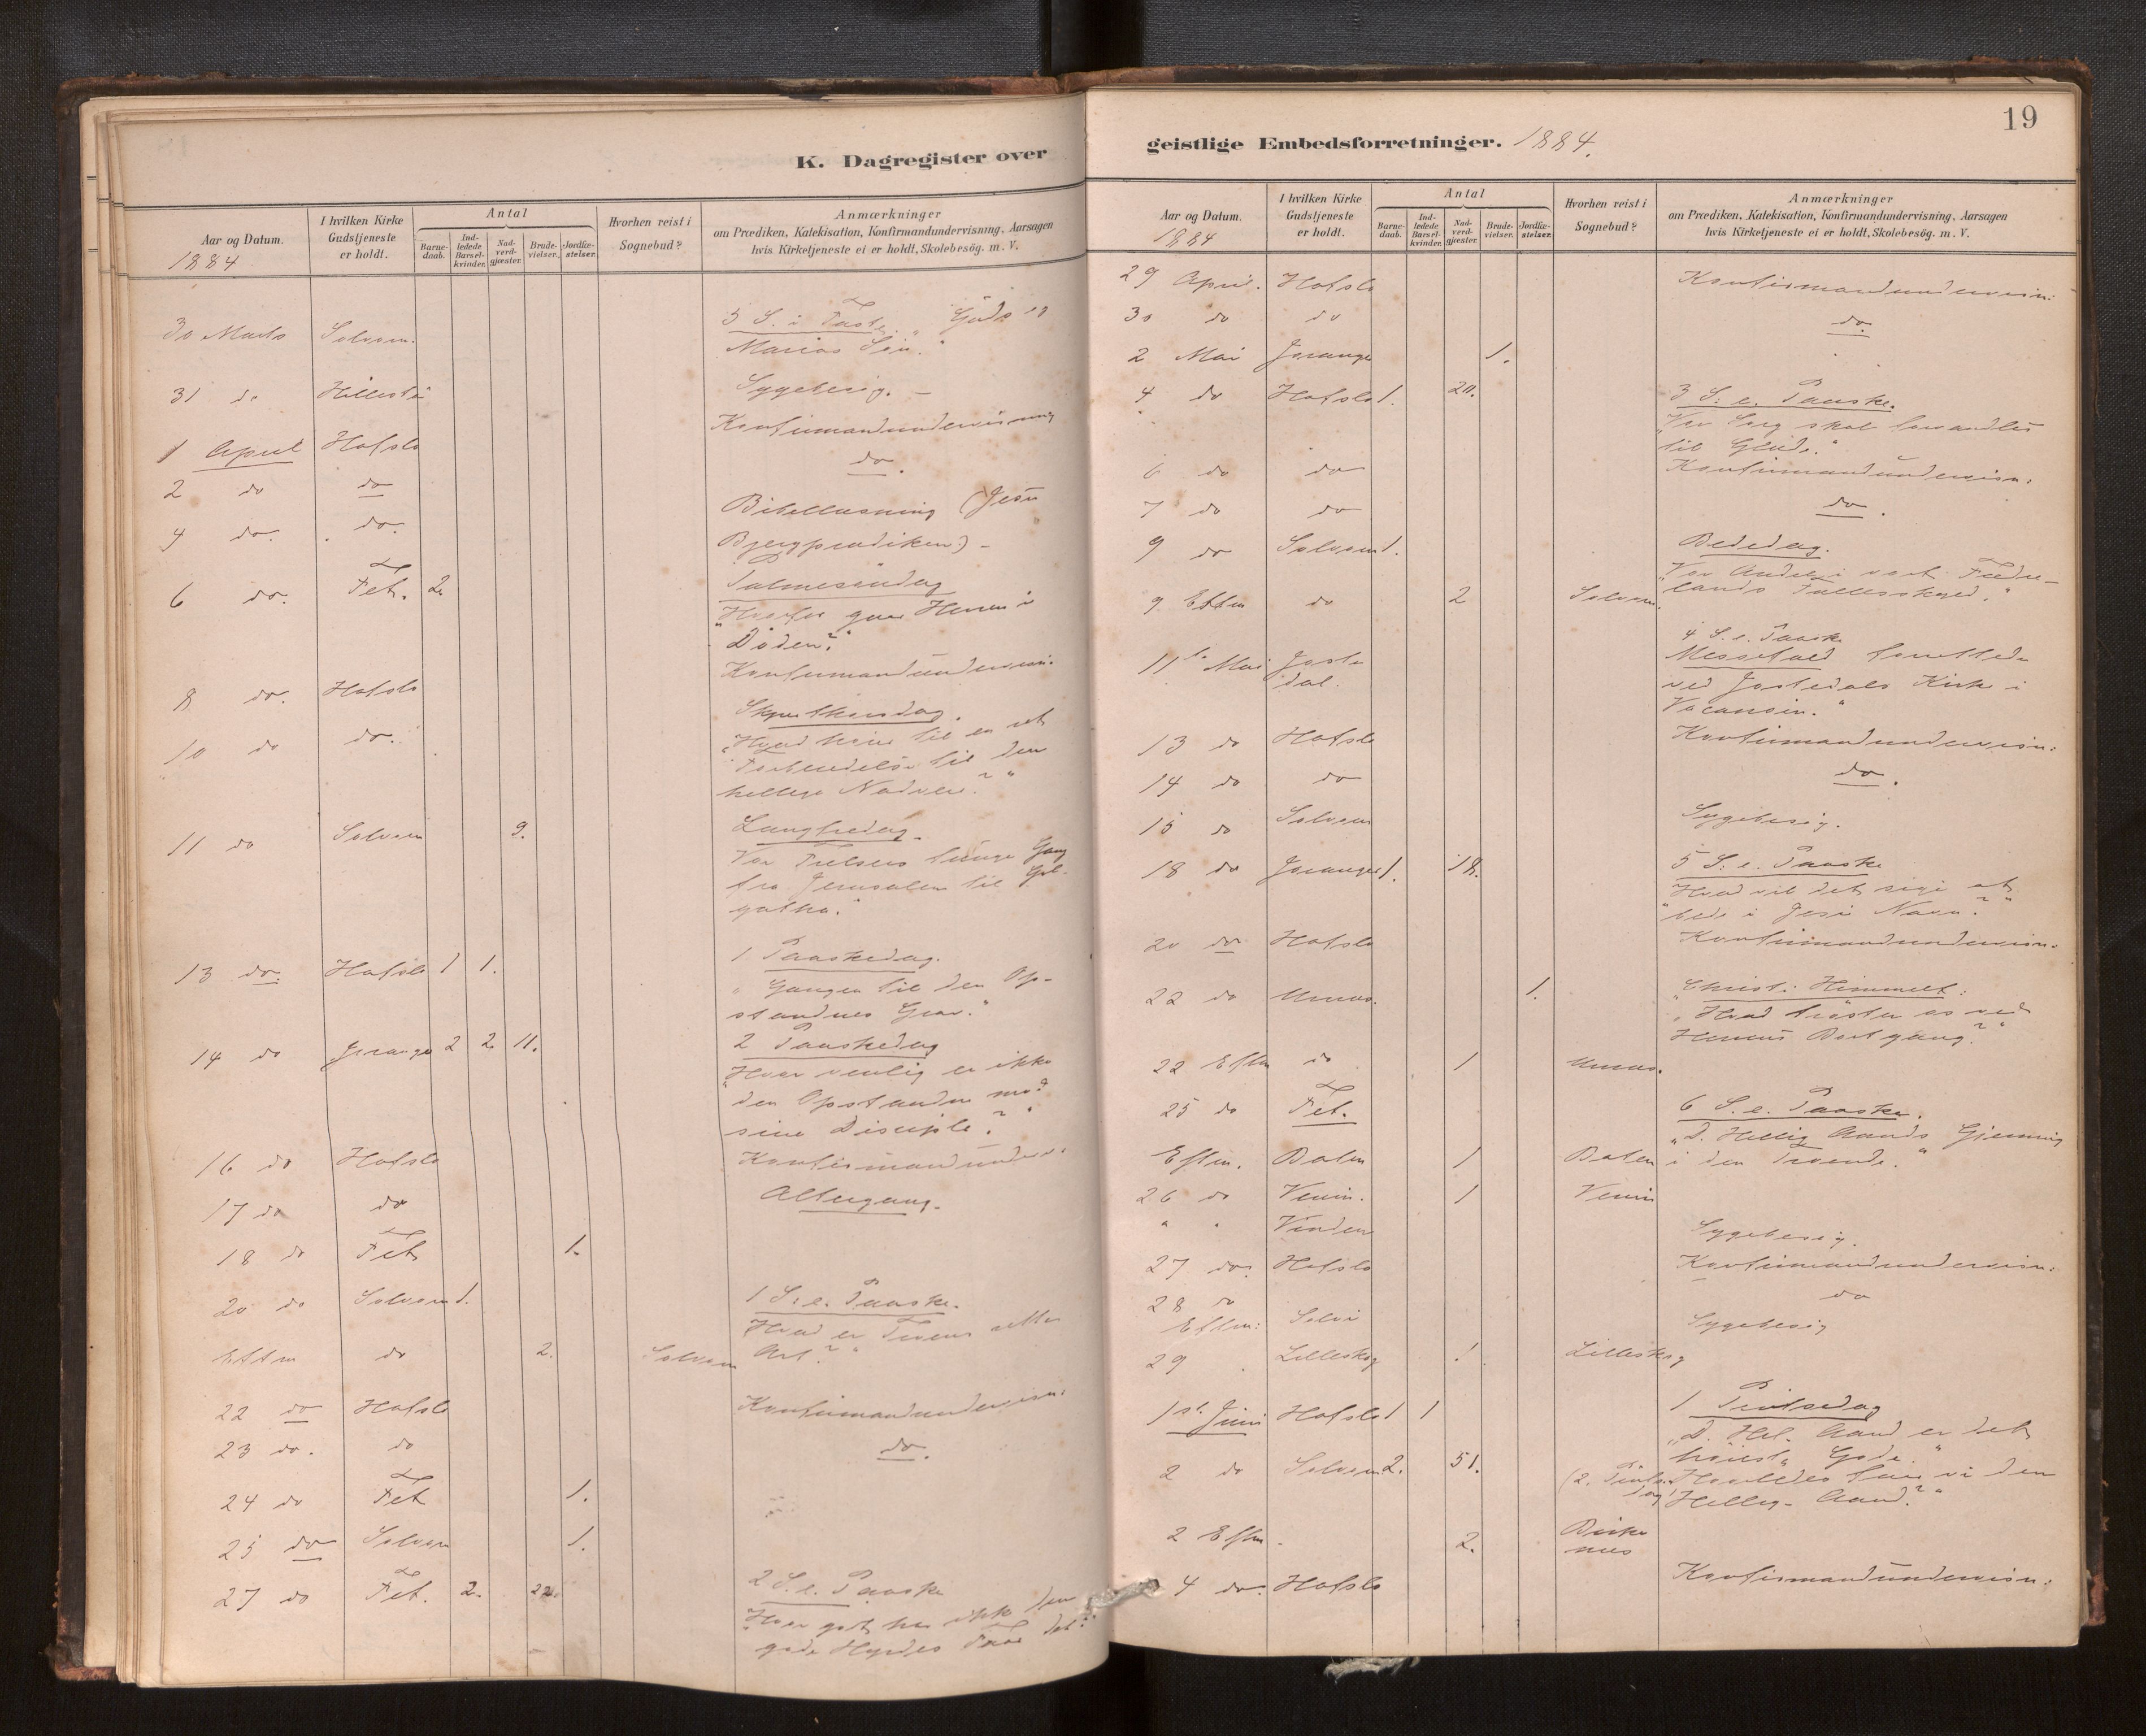 K. Dagregister over
Aar og Datum.
1884
I hvilken Kirke
Gudstjeneste
er holdt.
Antal
Barne-
daab.
Ind-
ledede
Barsel-
kvinder.
Nad-
verd-
gjæster.
Brude-
vielser.
Jordfæ-
stelser.
Hvorhen reist i
Sognebud?
Anmærkninger
om Prædiken, Katekisation, Konfirmandundervisning, Aarsagen
hvis Kirketjeneste ei er holdt, Skolebesög. m. V.
30 Marts Solvorn. 5 S. i Faste. „Guds og
Marias Søn."
31 do Sygebesøg. –
Konfirmandundervisning
1 April Hafslo
2 do do do.
4 do. do. Bibellæsning (Jesu
Bjergprædiken) –
6 do. Fet. 2. Palmesøndag
„Hvorfor gaar Herren i
Døden?"
8 do. Hafslo Konfirmandundervisn.
10 do do. Skjærthorsdag.
„Hvad hører til en ret
Forberedelse til den
hellige Nadver?"
11 do Solvorn 9. Langfredag.
Vor Frelsers tunge Gang
fra Jerusalem til Gol-
gatha."
13 do. Hafslo 1 1. 1 Paaskedag.
„Gangen til den Op-
standnes Grav."
14 do Joranger 2 2. 11. 2 Paaskedag
„Hvor venlig er ikke
den Opstandne mod
sine Disciple?"
16 do Hafslo Konfirmandunderv.
17 do do Altergang.
18 do Fet 1.
20 do Solvorn 1. 1 S. e. Paaske.
Hvad er Troens rette
Art?"
Eftm do 2. Solvorn
22 do Hafslo Konfirmandundervisn.
23 do. do do.
24 do Fet 1.
25 do Solvorn 1.
27 do Fet. 2. 22. 2 S. e. Paaske
„Hvor godt har ikke den
gode Hyrdes Faar det?"
geistlige Embedsforretninger. 1884.
19
Aar og Datum.
1884
I hvilken Kirke
Gudstjeneste
er holdt.
Antal
Barne-
daab.
Ind-
ledede
Barsel-
kvinder.
Nad-
verd-
gjæster.
Brude-
vielser.
Jordfæ-
stelser.
Hvorhen reist i
Sognebud?
Anmærkninger
om Prædiken, Katekisation, Konfirmandundervisning, Aarsagen
hvis Kirketjeneste ei er holdt, Skolebesög. m. V.
29 April. Hafslo Konfirmandundervisn.
30 do do do.
2 Mai Joranger 1.
4 do Hafslo 1. 20. 3 S. e. Paaske.
„Vor Sorg skal forvandles
til Glæde."
6 do do Konfirmandundervisn.
7 do do do.
9 do Solvorn 1. Bededag.
„Vor Andel i vort Fædre-
lands Fællesskyld."
9 Eftm do 2 Solvorn.
4 S. e. Paaske
11te Mai Joste-
dal. Messefald forrettede
ved Jostedals Kirke i
Vacansen."
13 do Hafslo Konfirmandundervisn.
14 do do do.
15 do Solvorn Sygebesøg.
18 do Joranger 1. 18. 5 S. e. Paaske
Hvad vil det sige at
„bede i Jesu Navn?"
20 do Hafslo Konfirmandundervisn.
22 do Urnes. 1. „Christi Himmelf:
„Hvad trøster os ved
Herrens Bortgang?"
22 Eftm do 1 Urnes.
25 do Fet. 6 S. e. Paaske.
„D. Hellig Aands Gjerning
i den Troende."
Eftm. Dalen 1 Dalen
26 do 1
" "
Sygebesøg.
27 do. Hafslo Konfirmandundervisn.
28 do do
Eftm: Sygebesøg
29 Lilleskog 1 Lilleskog
1st. Juni Hafslo 1 1 1 Pintsedag
„D. Hel. Aand er det
høieste Gode."
2 do Solvorn 2. 51. (2. Pintse-
dag) Hvorledes faar vi den
Hellig-Aand?"
2 Eftm. 2.
4 do. Hafslo Konfirmandundervisn.